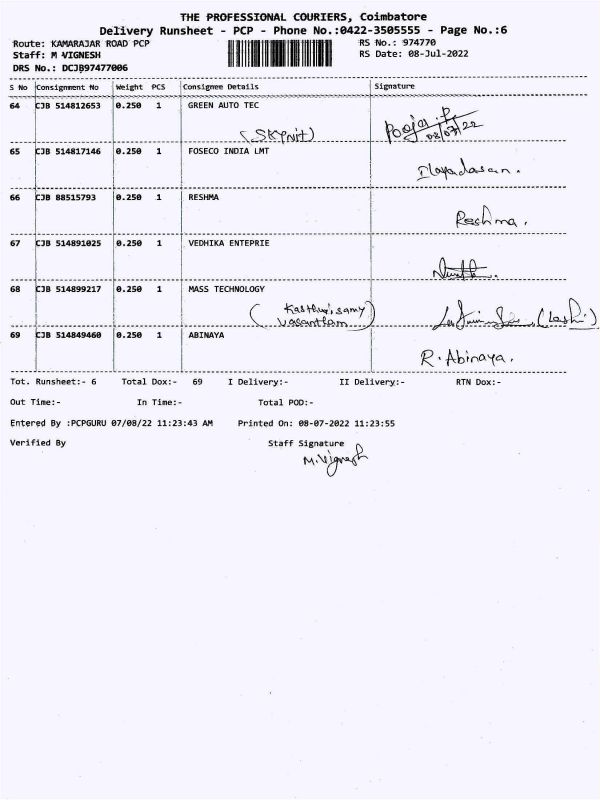 THE PROFESSIONAL COURIERS, Coimbatore
Delivery Runsheet - PCP - Phone No.:0422-3505555 - Page No.:6
Route: KAMARAJAR ROAD PCP RS No.: 974770
Staff: M VIGNESH RS Date: 08-Jul-2022
DRS No.: DCJB97477006
S No Consignment No Weight PCS Consignee Details Signature
64 CJB 514812653 0.250 1 GREEN AUTO TEC
(SKYnit) Pooja. P. 08/07/22
65 CJB 514817146 0.250 1 FOSECO INDIA LMT
Ilayadasan.
66 CJB 88515793 0.250 1 RESHMA
Reshma.
67 CJB 514891025 0.250 1 VEDHIKA ENTEPRIE
68 CJB 514899217 0.250 1 MASS TECHNOLOGY
(Kasthurisamy
Vasantham)
69 CJB 514849460 0.250 1 ABINAYA
R. Abinaya.
Tot. Runsheet:- 6 Total Dox:- 69 I Delivery:- II Delivery:- RTN Dox:-
Out Time:- In Time:- Total POD:-
Entered By :PCPGURU 07/08/22 11:23:43 AM Printed On: 08-07-2022 11:23:55
Verified By Staff Signature
M.Vignesh